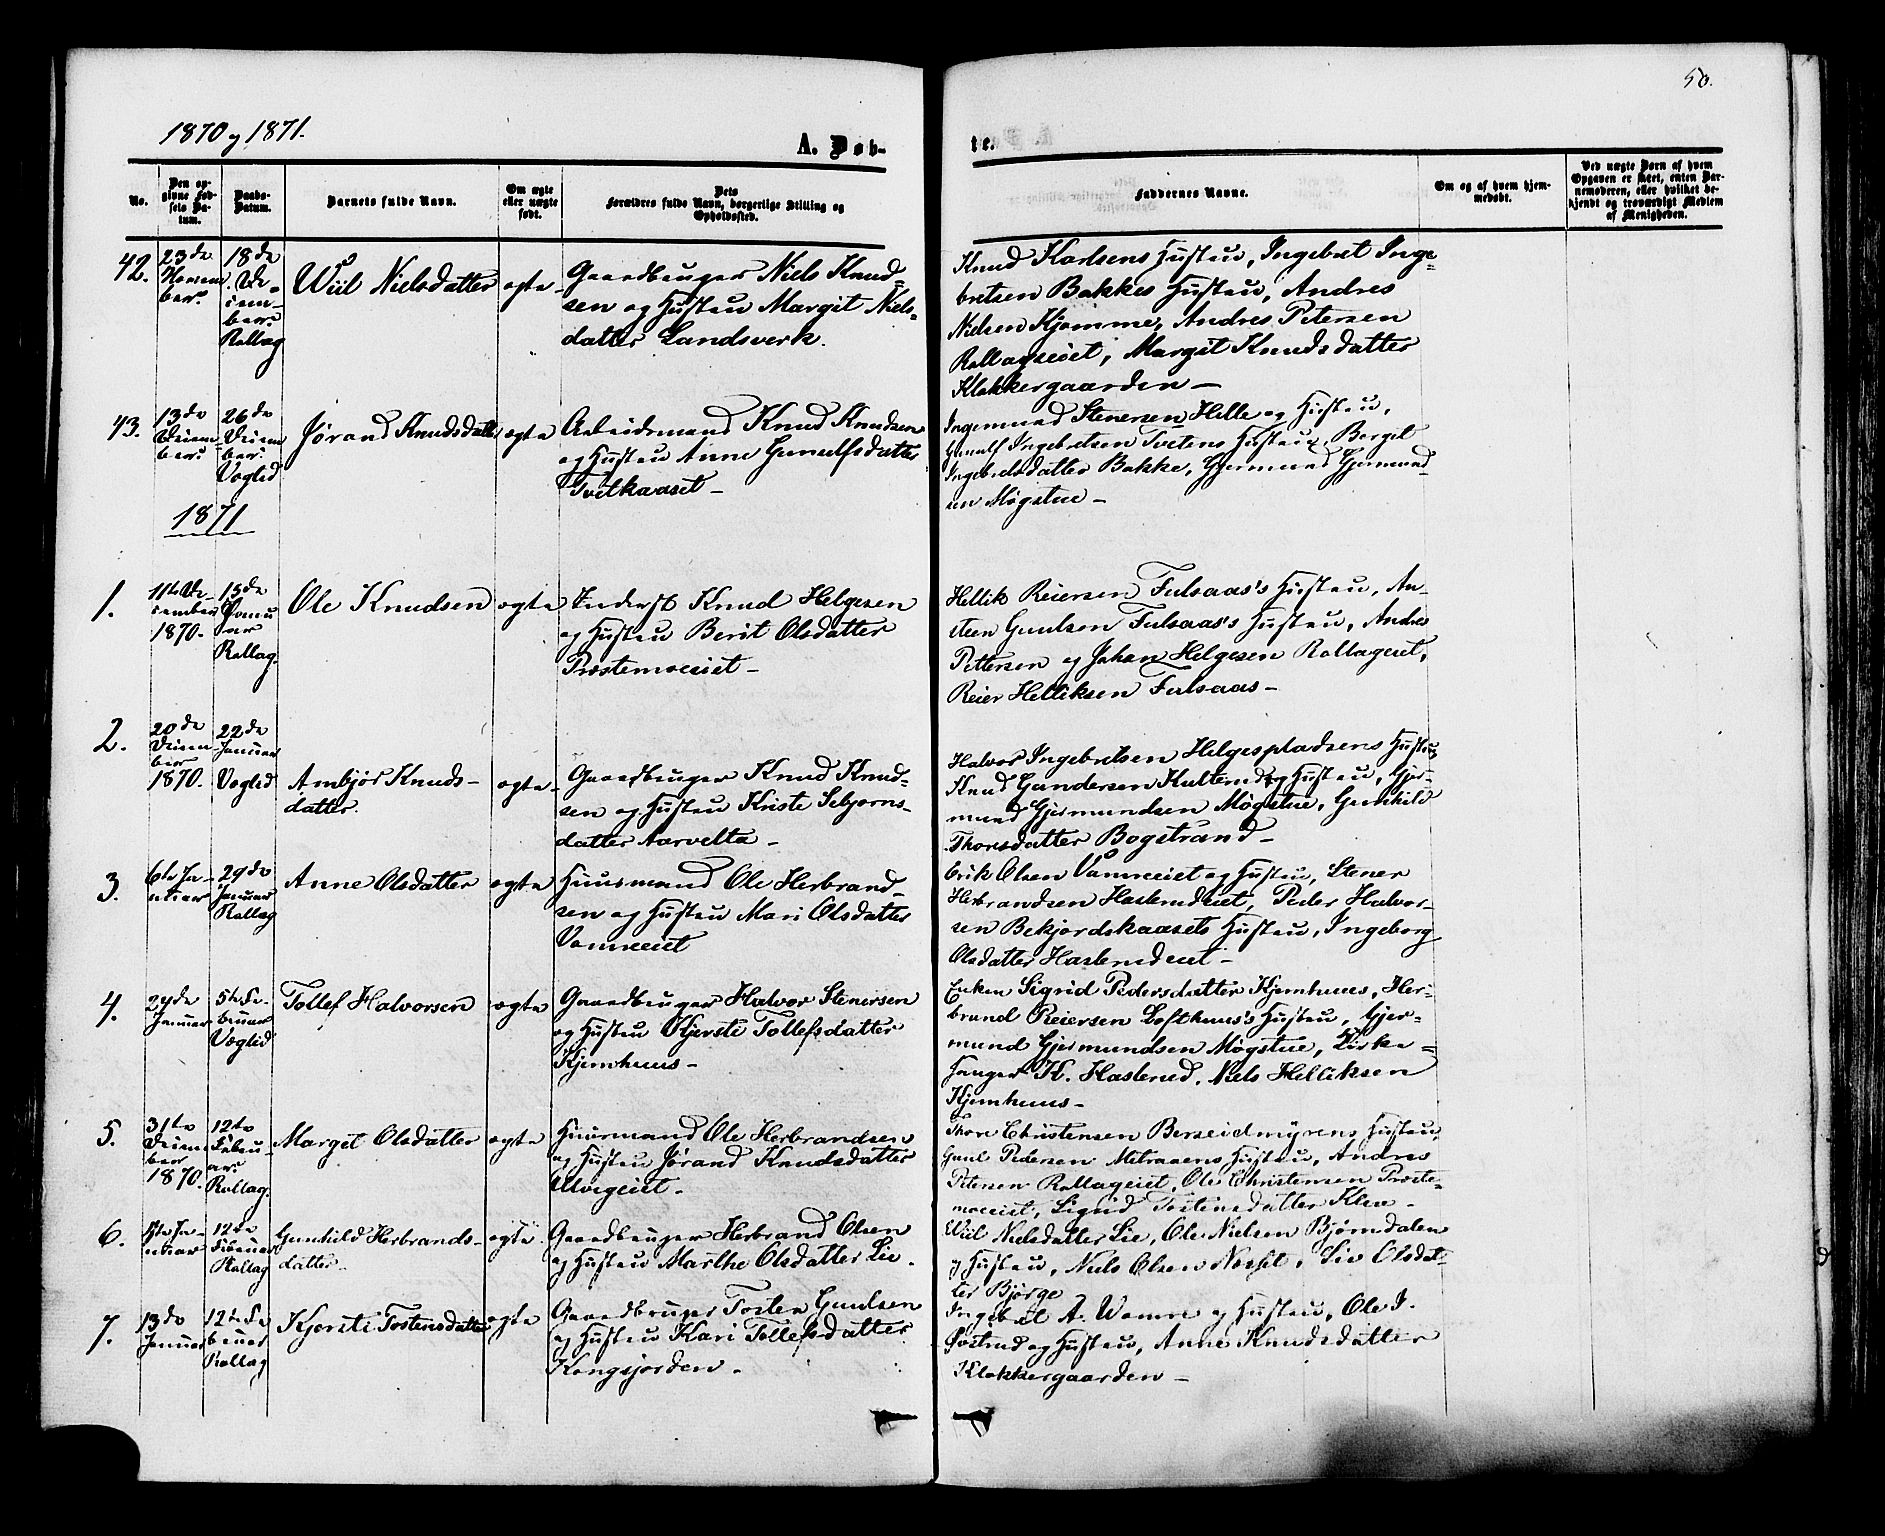 50.
1870 og 1871.
A. Døb-
te.
No.
Den op-
givne Fød-
sels Da-
tum.
Daabs-
Datum.
Barnets fulde Navn.
Om ægte
eller uægte
født.
Dets
Forældres fulde Navn, borgerlige Stilling og
Opholdssted.
Faddernes Navne.
Om og af hvem hjem-
medøbt.
Ved uægte Børn af hvem
Opgaven er skeet, enten Bar-
nemoderen, eller hvilket be-
kjendt og troværdigt Medlem
af Menigheden.
42.
23de
Novem
ber.
18de
De-
cem-
ber.
Rollag
Wiil Nielsdatter
ægte
Gaardbruger Niels Knud-
sen og Hustru Margit Niels-
datter Landsverk.
Knud Karlsens Hustru, Ingebret Inge-
bretsen Bakkes Hustru, Andres
Nielsen Hjomme, Andres Petersen
Rollagseiet, Margit Knudsdatter
Klokkergaarden -
43.
13de
Decem
ber
26de
Decem
ber.
Veglid
Jørand Knudsdatter
ægte
Arbeidsmand Knud Knudsen
og Hustru Anne Gunulfsdatter
Tveitkaaset -
Ingemund Stenersen Helle og Hustru,
Gunulf Ingebretsen Tvetens Hustru, Berget
Ingebretsdatter Bakke, Gjermund Gjermund-
sen Møgstue -
1871
1.
11te De-
cember
1870.
15de
Janu
ar
Rollag.
Ole Knudsen
ægte
Inderst Knud Helgesen
og Hustru Berit Olsdatter
Prestemoeiet -
Hellik Reiersen Fulsaas's Hustru, An-
steen Gunulsen Fulsaas's Hustru, Andres
Pettersen og Johan Helgesen Rollageiet,
Reier Helliksen Fulsaas -
2.
20de
Decem
ber
1870.
22de
Januar
Veglid
Ambjør Knuds-
datter.
ægte
Gaardbruger Knud Knud-
sen og Hustru Kristi Sebjørns-
datter Aarvelta -
Halvor Ingebretsen Helgespladsens Hustru
Knud Gundersen Kulterud og Hustru, Gjer-
mund Gjermundsen Møgstue, Gunhild
Thorsdatter Bogstrand -
3.
6te Ja-
nuar
29de
Januar
Rollag
Anne Olsdatter
ægte
Huusmand Ole Herbrand-
sen og Hustru Mari Olsdatter
Vammeiet
Erik Olsen Vammeiet og Hustru, Stener
Herbrandsen Haslerudeiet, Peder Halvor-
sen Bekjordskaasets Hustru, Ingeborg
Olsdatter Haslerudeiet -
4.
24de
Januar
5te Fe-
bruar
Veglid
Tollef Halvorsen
ægte
Gaardbruger Halvor Stenersen
og Hustru Kjersti Tollefsdatter
Kjemhuus -
Enken Sigrid Pedersdatter Kjemhuus, Her-
brand Reiersen Lofthuus's Hustru, Gjer-
mund Gjermundsen Møgstue, Kirke-
sanger K. Haslerud, Niels Helliksen
Kjemhuus -
5.
31te
Decem
ber
1870.
12te
Febru-
ar
Rollag.
Marget Olsdatter
ægte
Huusmand Ole Herbrandsen
og Hustru Jørand Knudsdatter
Ulvigeiet -
Thore Christensen Berseidmyrens Hustru,
Gunl Pedersen Metraaens Hustru, Andres
Petersen Rollageiet, Ole Christensen Preste-
moeiet, Sigrid Tostensdatter Klev -
6.
Ja-
nuar
12te
Februar
Rollag
Gunhild Herbrands-
datter.
ægte
Gaardbruger Herbrand Olsen
og Hustru Marthe Olsdatter Lie.
Wiil Nielsdatter Lie, Ole Nielsen Bjørndalen
og Hustru, Niels Olsen, Liv Olsdat-
ter Bjørge
7.
13de
Januar
12te Fe
bruar
Rollag
Kjersti Tostensdatter
ægte
Gaardbruger Tosten Gunlsen
og Hustru Kari Tollefsdatter
Kongsjorden -
Ingebret A. Wamre og Hustru, Ole I.
og Hustru, Anne Knudsdatter
Klokkergaarden -